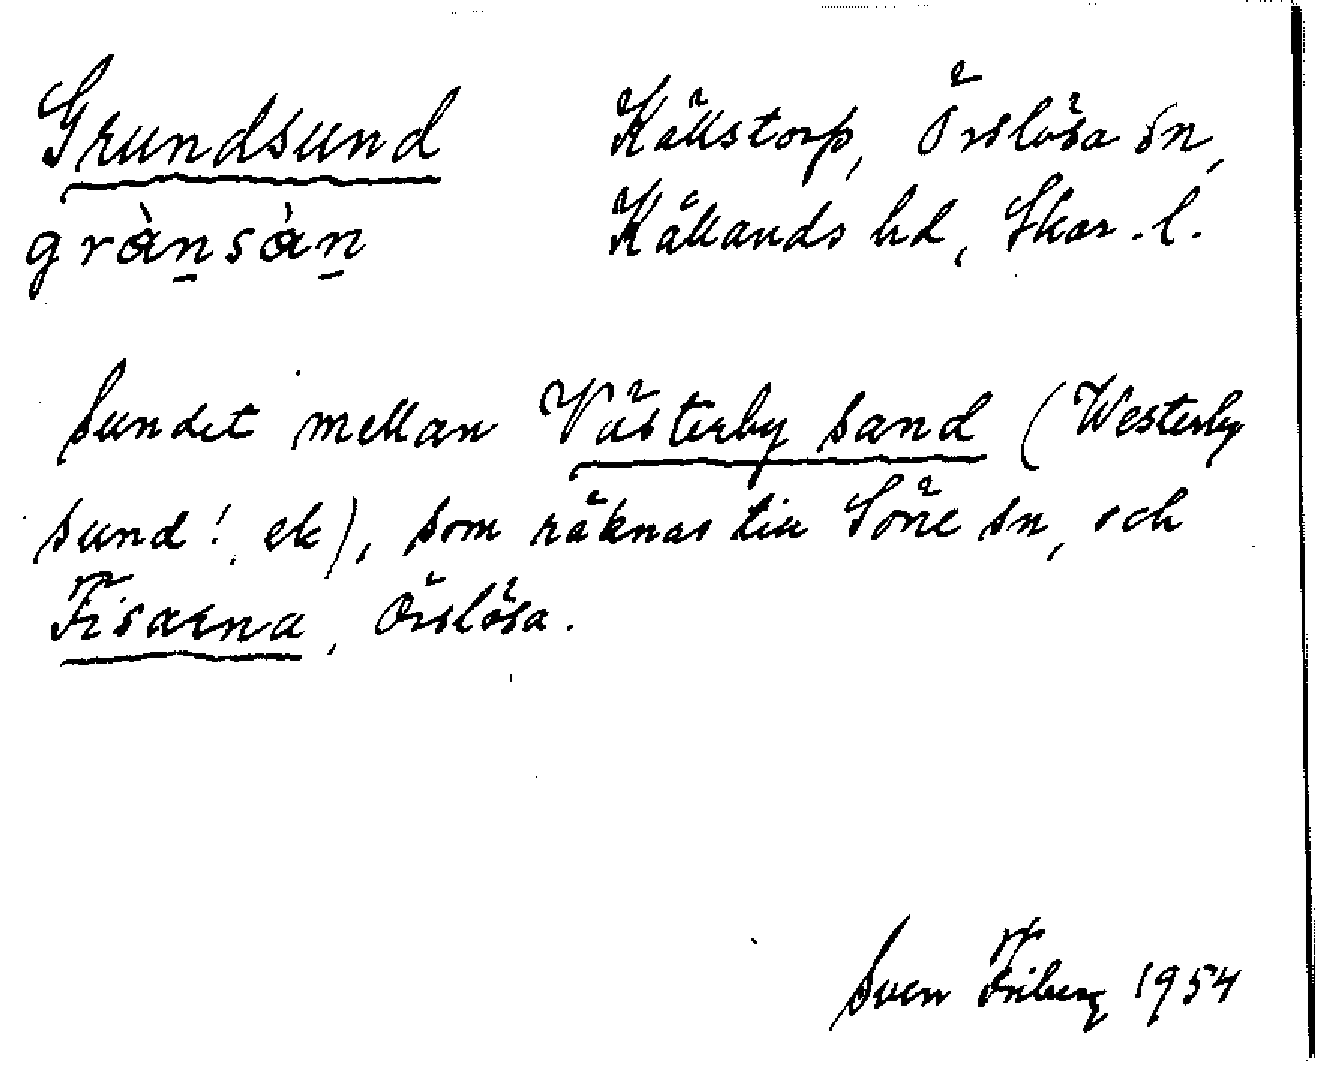 Grundsund Källstorp, Örslösa sn,
grànsàn Kållands hd, Skar. l.
Sundet mellan Västerby sand (Westerby
sund! ek), som räknas till Söne sn, och
Fisarna, Örslösa.
Sven Friberg 1954